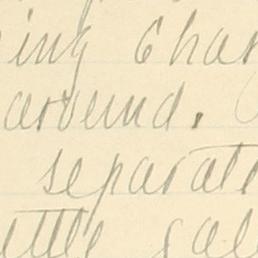 ing char
around.
separate
ttle gal